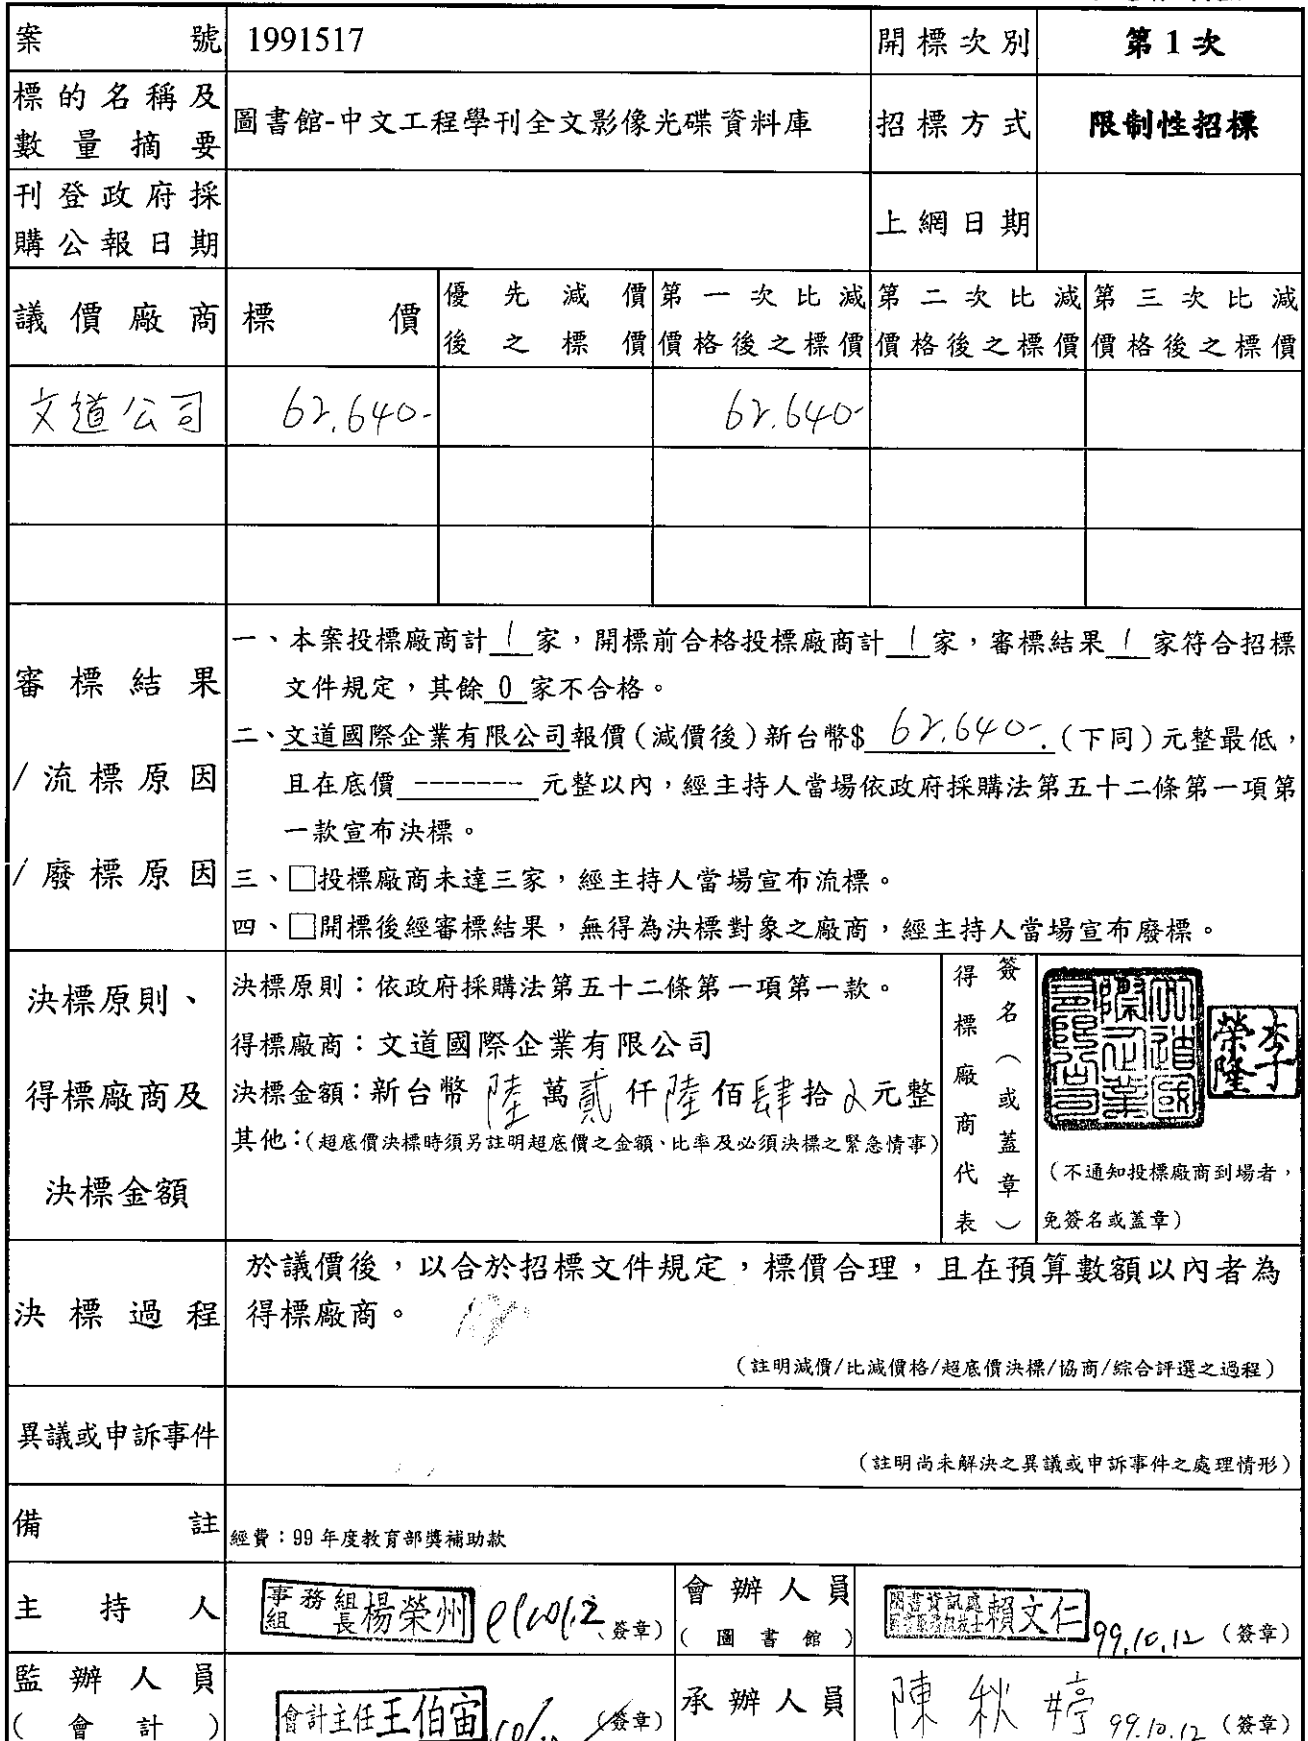 案號 1991517 開標次別 第1次
標的名稱及數量摘要 圖書館-中文工程學刊全文影像光碟資料庫 招標方式 限制性招標
刊登政府採購公報日期 上網日期
議價廠商 標價 優先減價後之標價 第一次比減價格後之標價 第二次比減價格後之標價 第三次比減價格後之標價
文道公司 62,640- 62,640-
審標結果/流標原因/廢標原因
一、本案投標廠商計 1 家，開標前合格投標廠商計 1 家，審標結果 1 家符合招標
文件規定，其餘 0 家不合格。
二、文道國際企業有限公司報價(減價後)新台幣$ 62,640-.(下同)元整最低，
且在底價 ------- 元整以內，經主持人當場依政府採購法第五十二條第一項第
一款宣布決標。
三、□投標廠商未達三家，經主持人當場宣布流標。
四、□開標後經審標結果，無得為決標對象之廠商，經主持人當場宣布廢標。
決標原則、得標廠商及決標金額
決標原則：依政府採購法第五十二條第一項第一款。
得標廠商：文道國際企業有限公司
決標金額：新台幣 陸 萬 貳 仟 陸 佰 肆 拾 元整
其他：(超底價決標時須另註明超底價之金額、比率及必須決標之緊急情事)
得標廠商代表
簽名（或蓋章）
文道國際企業有限公司
李榮隆
(不通知投標廠商到場者，
免簽名或蓋章)
決標過程
於議價後，以合於招標文件規定，標價合理，且在預算數額以內者為
得標廠商。
(註明減價/比減價格/超底價決標/協商/綜合評選之過程)
異議或申訴事件
(註明尚未解決之異議或申訴事件之處理情形)
備註 經費：99 年度教育部獎補助款
主持人 事務組組長 楊榮州 簽章) 會辦人員(圖書館) 賴文仁 99.10.12 (簽章)
監辦人員(會計) 會計主任 王伯宙 (簽章) 承辦人員 陳秋婷 99.10.12 (簽章)